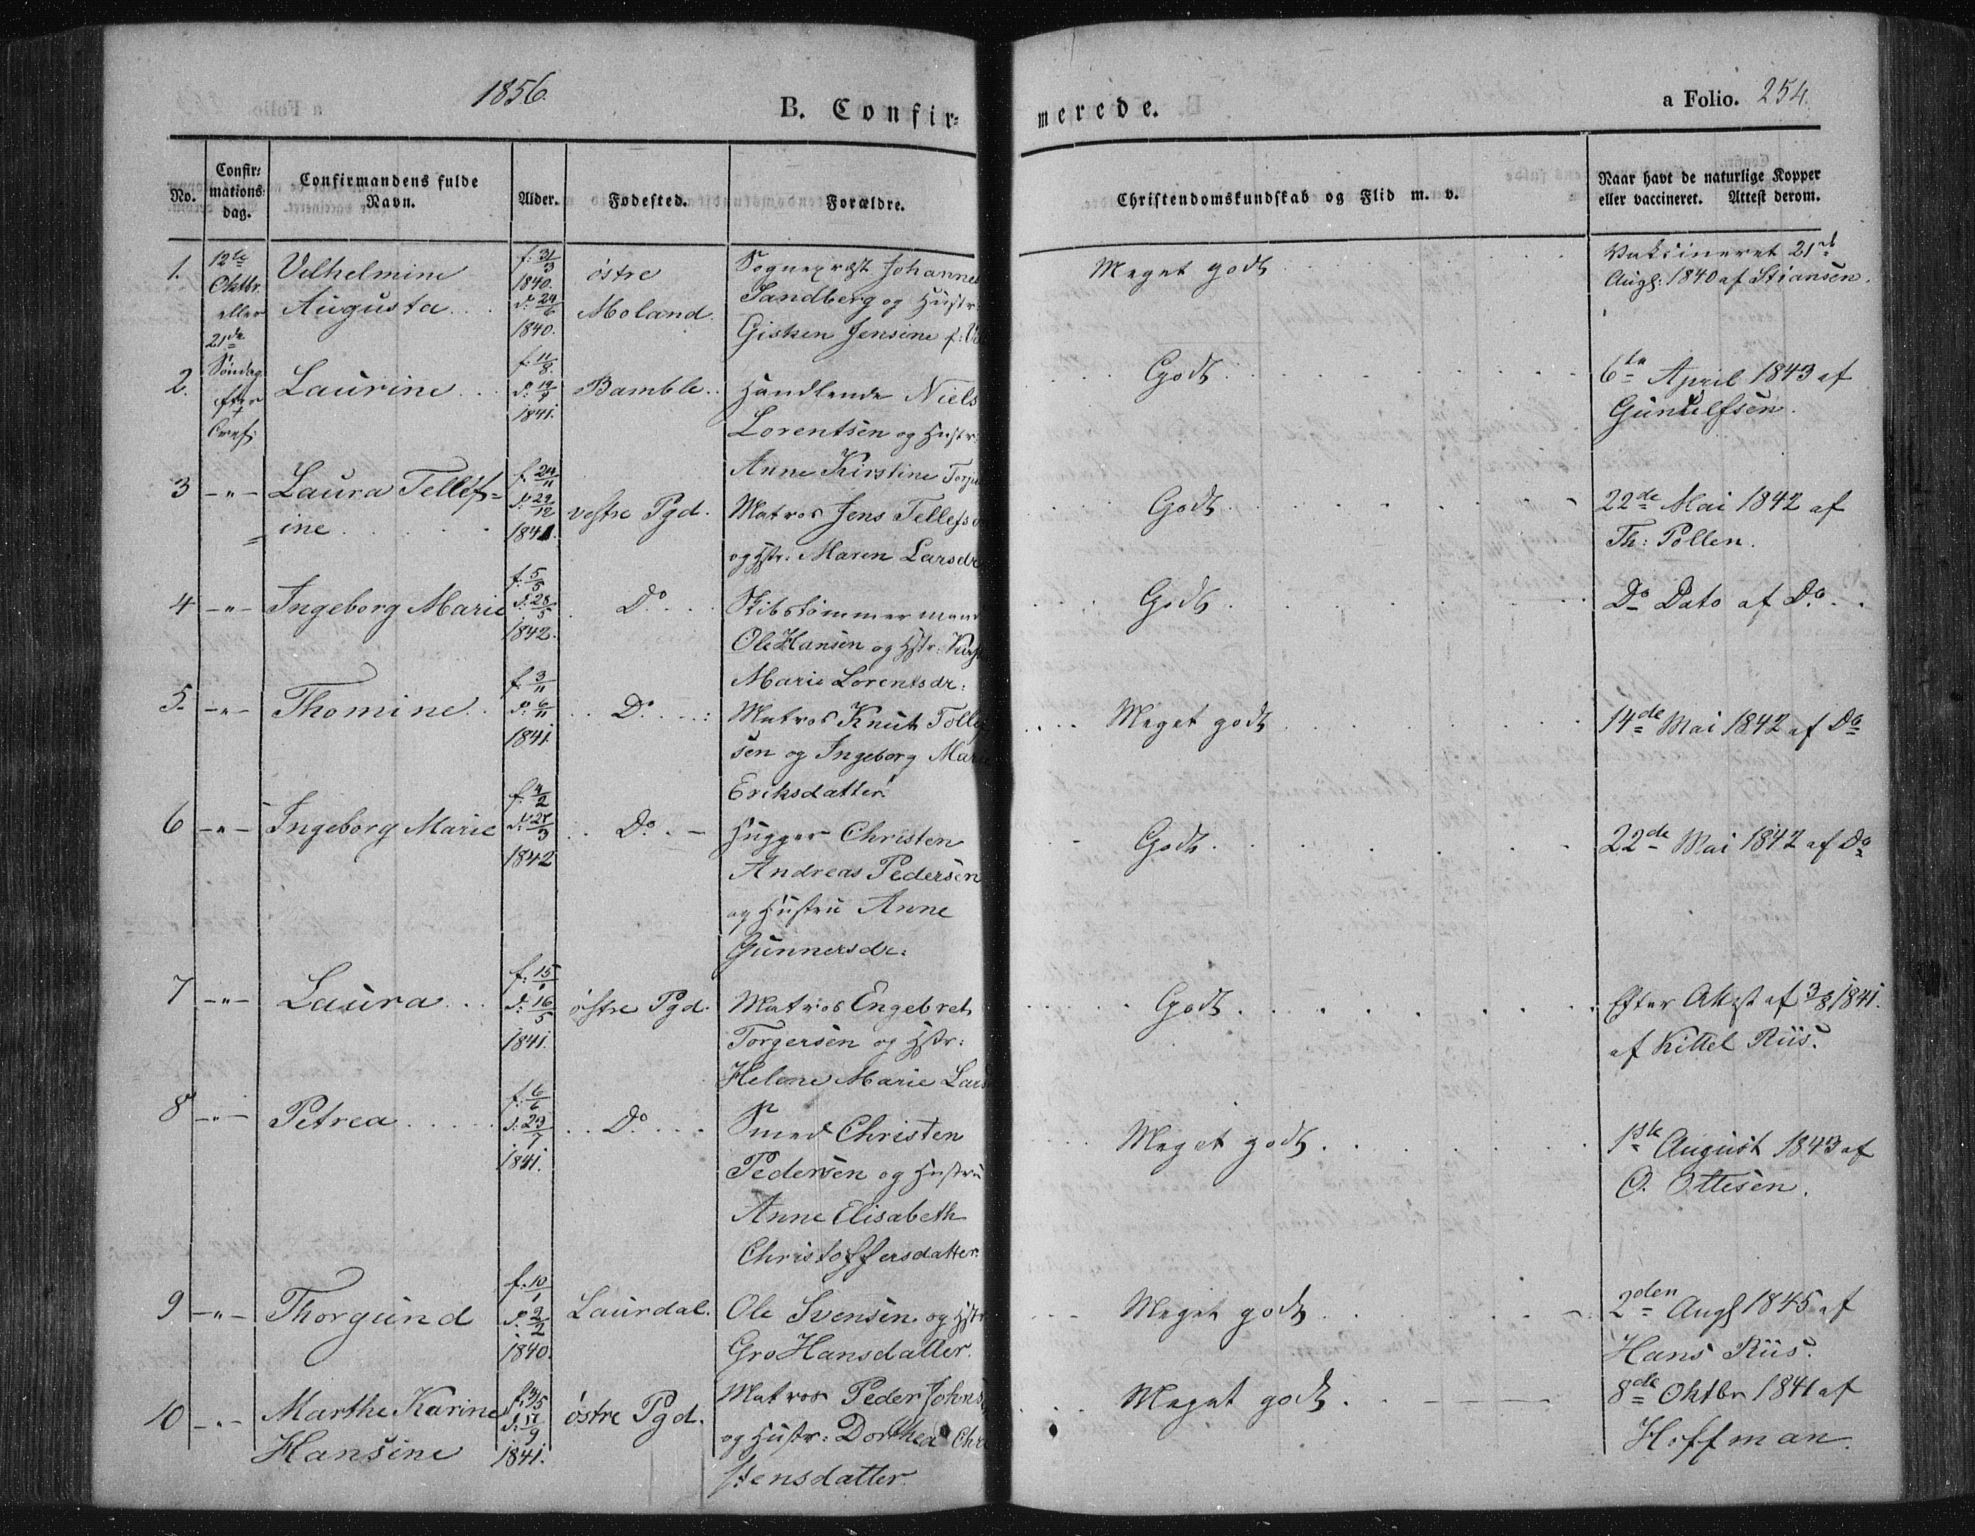 1856.
B. Confir=
merede.
a Folio. 254.
No.
Confir=
mations
dag.
Confirmandens fulde
Navn.
Alder.
Fødested.
Forældre.
Christendomskundskab og Flid m. v.
Naar havt de naturlige Kopper
eller vaccineret. Attest derom.
1.
12te
Oktbr.
eller
21de
Søndag
efter
Vilhelmine
Augusta
f. 31/3
1840.
d. 24/6
1840.
østre
Moland.
Sognepræst Johannes
Sandberg og Hustr:
Gisken Jensine f:
Meget godt
Vakcineret 21de
Augst: 1840 af Stiansen.
2.
Laurine
f. 11/8.
d. 19/9
1841.
Bamble.
Handlende Niels
Lorentsen og Hustr:
Anne Kirstine
Godt.
6te April 1843 af
Gunulfsen.
3
-"-
Laura Tellef=
ine
f. 24/11
d. 29/12
1841.
vestre Pgd.
Matros Jens Tellefs
og Hstr: Maren Larsdr
Godt.
22de Mai 1842 af
Th: Pollen.
4
-"-
Ingeborg Marie
f. 5/5
d. 28/5
1842.
Do
Skibstømmermand
Ole Hansen og Hstr:
Marie Lorentsdr:
Godt.
Do Dato af Do.
5.
-"-
Thomine.
f. 3/11
d. 6/11
1841
Do
Matros Knut Tollef
sen og Ingeborg Marie
Eriksdatter
Meget godt
14de Mai 1842 af Do
6
-"-
Ingeborg Marie
f. 4/2
d. 27/3
1842
Do
Hugger Christen
Andreas Pedersen
og Hustru Anne
Gunnersdr:
Godt.
22de Mai 1842 af Do
7
-"-
Laura
f. 15/1
d. 16/5
1841.
østre Pgd.
Matros Engebret
Torgersen og Hstr:
Helene Marie Lars
Godt.
Efter Attest af 3/8 1841.
af Kittel Riis.
8
-"-
Petrea
f. 6/6
d. 29/7
1841.
Do
Smed Christen
Pedersen og Hustru
Anne Elisabeth
Christoffersdatter.
Meget godt.
1ste August 1843 af
O. Ottesen.
9
-"-
Thorgund
f. 10/1
d. 2/2
1840.
Laurdal.
Ole Svensen og Hstr
Gro Hansdatter.
Meget godt.
2den Augst 1845 af
Hans Riis.
10
-"-
Marthe Karine
Hansine
d. 17/9
1841.
østre Pgd.
Matros Peder Johns
og Hustr: Dorthea Chri
stensdatter
Meget godt.
8de Oktbr 1841 af
Hoffman.